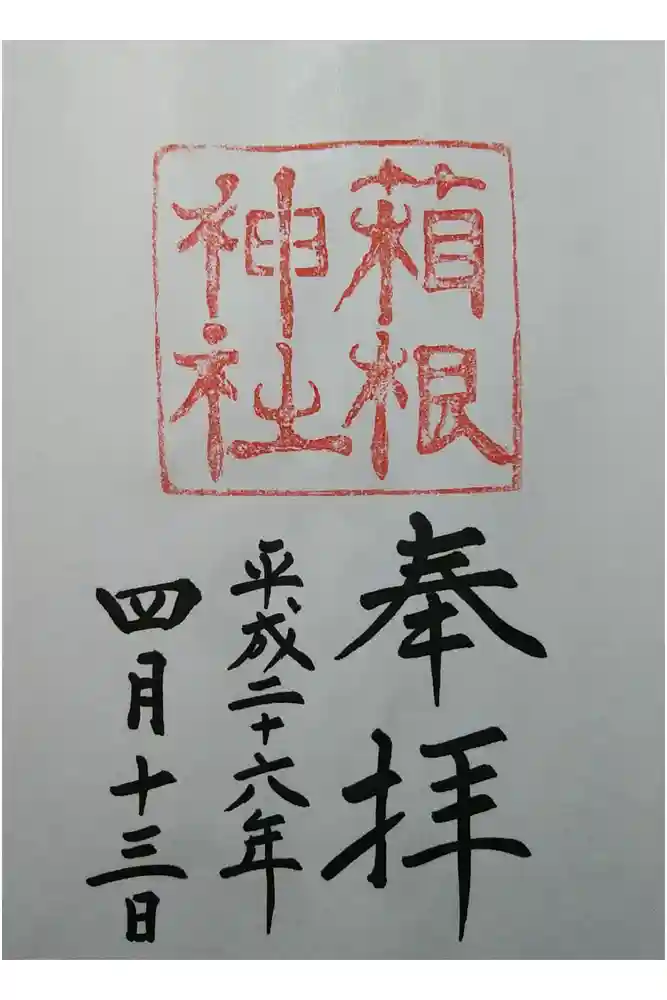 箱根
神社
奉拝
平成二十六年
四月十三日